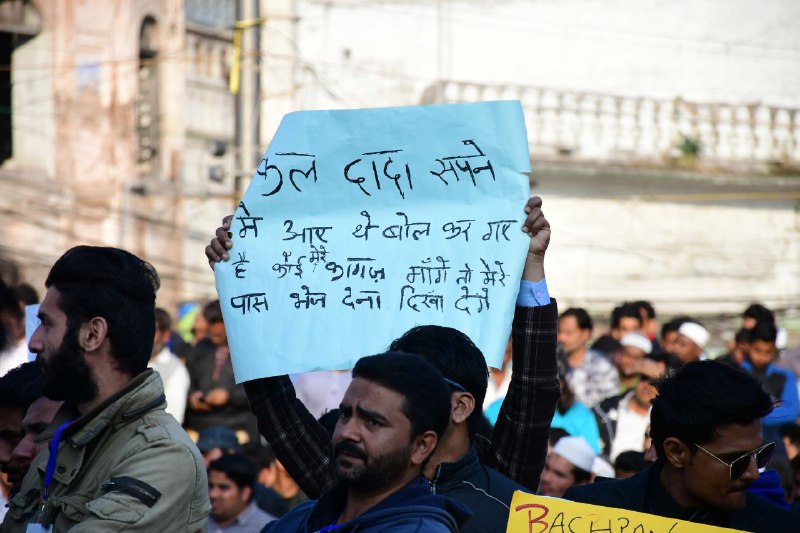 कल दादा सपने
मे आए थे बोल कर गए
है कोई मेरे कागज़ माँगे तो मेरे
पास भेज देना दिखा देंगे
BACHPAN